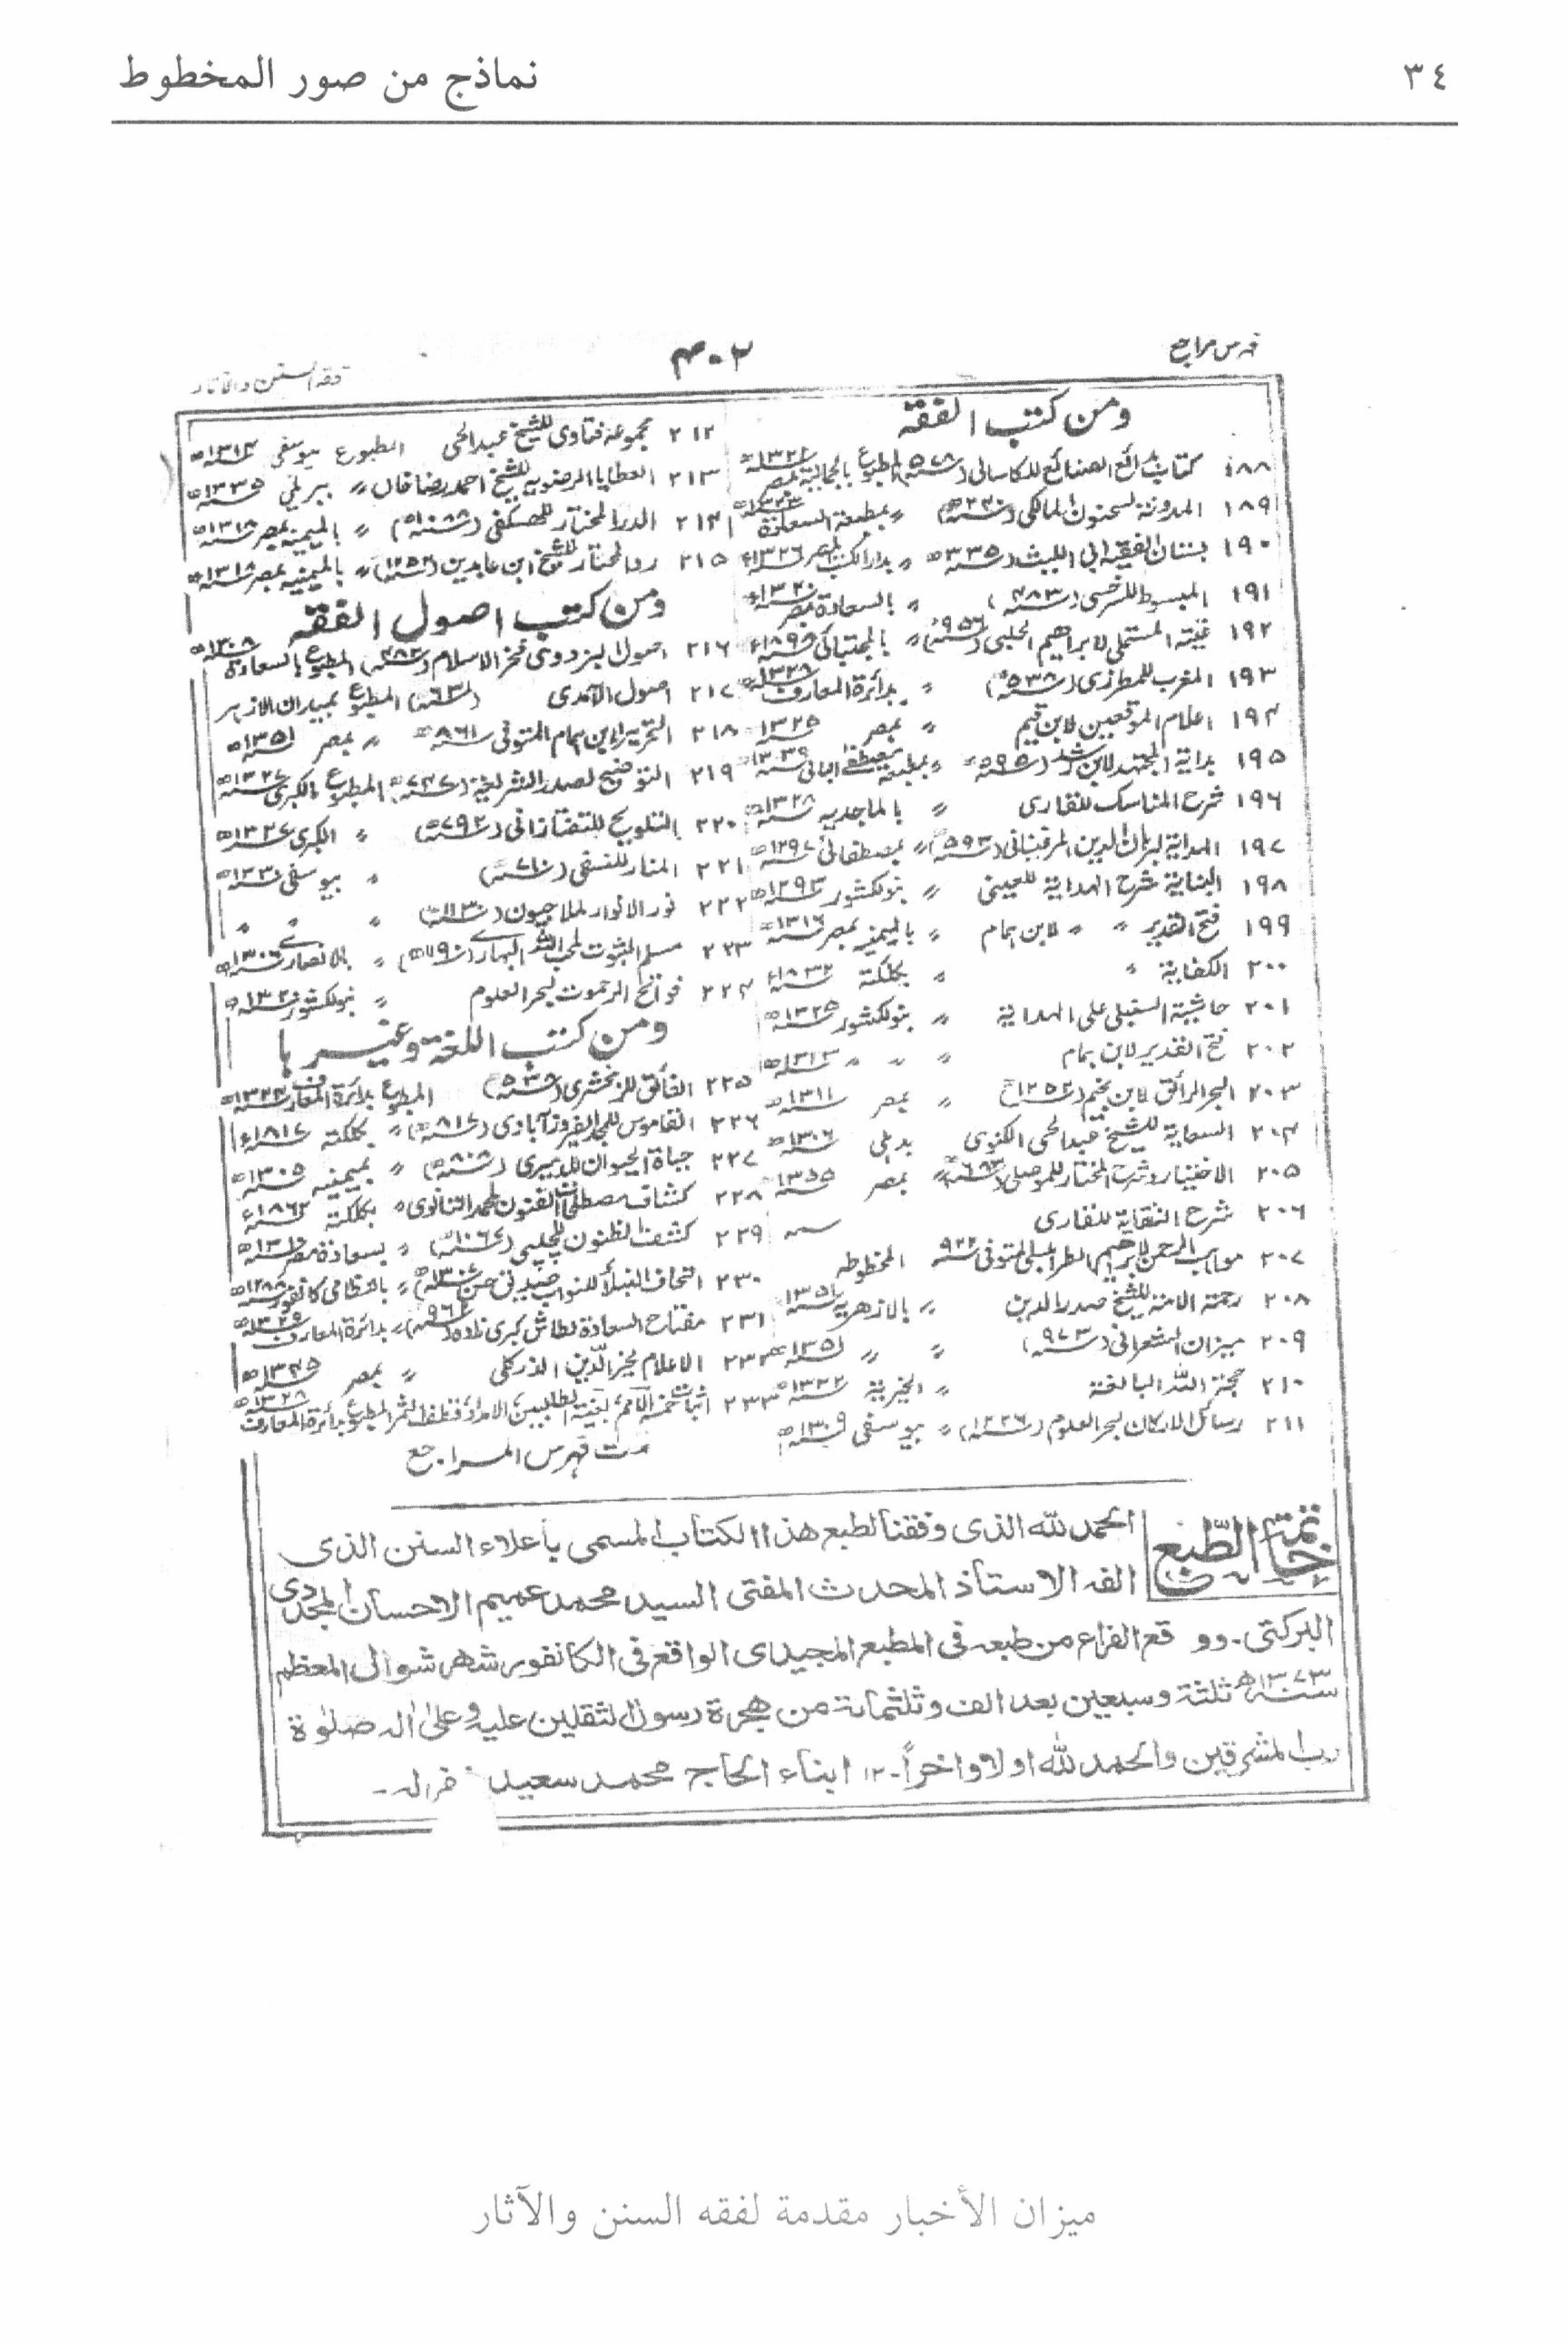 ٣٤
نماذج من صور المخطوط
فهرس مراجع
٤٠٢
فقه السنن والآثار
ومن كتب الفقه
١٨٨ كتاب بدائع الصنائع للكاسانى (٥٧٨ه) المطبوع بالجمالية بمصر
١٨٩ المدونة لسحنون المالكى (سنه) 〃 بمطبعة السعادة
١٩٠ بستان الفقيه ابى الليث (سنه ٣٣٥ه 〃 بدار الكتب
١٩١ المبسوط للسرخسى (سنه ٤٨٣) 〃 بالسعادة بمصر
١٩٢ غنية المستملى لابراهيم الحلبى (سنه ٩٥٦) 〃 بالمجتبائى
١٩٣ المغرب للمطرزى (سنه ٥٣٨) 〃 بدائرة المعارف
١٩٤ اعلام الموقعين لابن قيم 〃 بمصر سنه ١٣٢٥
١٩٥ بداية المجتهد لابن رشد (سنه ٥٩٥) 〃 بمطبعة مصطفى البابى
١٩٦ شرح المناسك للقارى 〃 بالماجديه
١٩٧ الهداية لبرهان الدين المرغينانى (سنه ٥٩٣) 〃 بمصطفائى
١٩٨ البناية شرح الهداية للعينى 〃 بنولكشور سنه ١٢٩٣ه
١٩٩ فتح القدير 〃 〃 لابن همام 〃 بالميمنيه بمصر سنه ١٣١٦
٢٠٠ الكفاية 〃 〃 بكلكته سنه
٢٠١ حاشية السنبلى على الهداية 〃 بنولكشور سنه ١٣٢٥
٢٠٢ فتح القدير لابن همام 〃 〃 〃
٢٠٣ البحر الرائق لابن نجيم 〃 بمصر سنه ١٣١١
٢٠٤ السعاية للشيخ عبد الحى الكنوى بدهلى سنه ١٣٠٦
٢٠٥ الاختيار وشرح المختار للموصلى (سنه ٦٨٣) 〃 بمصر سنه ١٣٥٥
٢٠٦ شرح النقاية للقارى
٢٠٧ مواهب الرحمن لابراهيم الطرابلسى المتوفى سنه ٩٢٢ المخطوطه
٢٠٨ رحمة الامة للشيخ صدر الدين 〃 بالازهريه
٢٠٩ ميزان الشعرانى (سنه ٩٧٣) 〃 〃 سنه ١٣٥١
٢١٠ حجة الله البالغة 〃 الخيرية سنه ١٣٢٢
٢١١ رسائل الاركان لبحر العلوم (سنه ١٢٢٦) 〃 يوسفى سنه ١٣٠٩ه
٢١٢ مجموعه فتاوى للشيخ عبد الحى المطبوع يوسفى
٢١٣ العطايا الرضويه للشيخ احمد رضا خان 〃 بريلى سنه ١٣٣٥ه
٢١٤ الدر المختار للحصكفى (سنه ١٠٨٨ه) 〃 الميمنيه بمصر سنه ١٣١٨ه
٢١٥ رد المحتار للشيخ ابن عابدين (سنه ١٢٥٢) 〃 بالميمنيه بمصر سنه ١٣١٨ه
ومن كتب اصول الفقه
٢١٦ اصول البزدوى فخر الاسلام (سنه ٤٨٢) المطبوع بالسعادة سنه ١٣٠٨
٢١٧ اصول الآمدى المطبوع بميدان الازهر
٢١٨ التحرير لابن همام المتوفى سنه ٨٦١ 〃 بمصر سنه ١٣٥١ه
٢١٩ التوضيح لصدر الشريعة (سنه ٧٤٧ه) المطبوع بالكبرى
٢٢٠ التلويح للتفتازانى (سنه ٧٩٢) 〃 الكبرى
٢٢١ المنار للنسفى (سنه ٧١٠) 〃 يوسفى سنه
٢٢٢ نور الانوار لملا جيون (سنه ١١٣٠) 〃 〃 〃
٢٢٣ مسلم الثبوت لمحب الله البهارى 〃 بالانصارى سنه ١٣٠٦ه
٢٢٤ فواتح الرحموت لبحر العلوم 〃 بنولكشور
ومن كتب اللغة وغيرها
٢٢٥ الفائق للزمخشرى (سنه ٥٣٨) المطبوع بدائرة المعارف سنه ١٣٢٤ه
٢٢٦ القاموس للمجد الفيروزآبادى (سنه ٨١٧ه) 〃 بكلكته سنه ١٨١٧ء
٢٢٧ حياة الحيوان للدميرى (سنه ٨٠٨ه) 〃 بميمنيه سنه ١٣٠٥ه
٢٢٨ كشاف مصطلحات الفنون لمحمد التهانوى 〃 بكلكته سنه ١٨٦٢ء
٢٢٩ كشف الظنون للجلبى (سنه ١٠٦٧ه) 〃 بسعادة مصر سنه ١٣١٠ه
٢٣٠ اتحاف النبلاء للنواب صديق حسن (سنه ١٣٠٧ه) 〃 بالنظامى كانفور سنه ١٢٨٨ه
٢٣١ مفتاح السعادة لطاش كبرى زاده (سنه ٩٦٢) 〃 بدائرة المعارف سنه ١٣٢٩ه
٢٣٢ الاعلام لخير الدين الذركلى 〃 بمصر سنه ١٣٤٥ه
٢٣٣ اثبات خمسة الامم بغية الطالبين الامداد قطف الثمر المطبوع بدائرة المعارف سنه ١٣٢٨ه
تمت فهرس المراجع
خاتمة الطبع
الحمد لله الذى وفقنا لطبع هذا الكتاب المسمى باعلاء السنن الذى
الفه الاستاذ المحدث المفتى السيد محمد عميم الاحسان المجددى
البركتى۔ ووقع الفراغ من طبعه فى المطبع المجيدى الواقع فى الكانفور شهر شوال المعظم
سنه ١٣٧٣ه ثلثة وسبعين بعد الف وثلثمائة من هجرة رسول الثقلين عليه وعلى اله صلوة
رب المشرقين والحمد لله اولا واخراً۔ ١٢ ابناء الحاج محمد سعيد غفر له۔
ميزان الأخبار مقدمة لفقه السنن والآثار